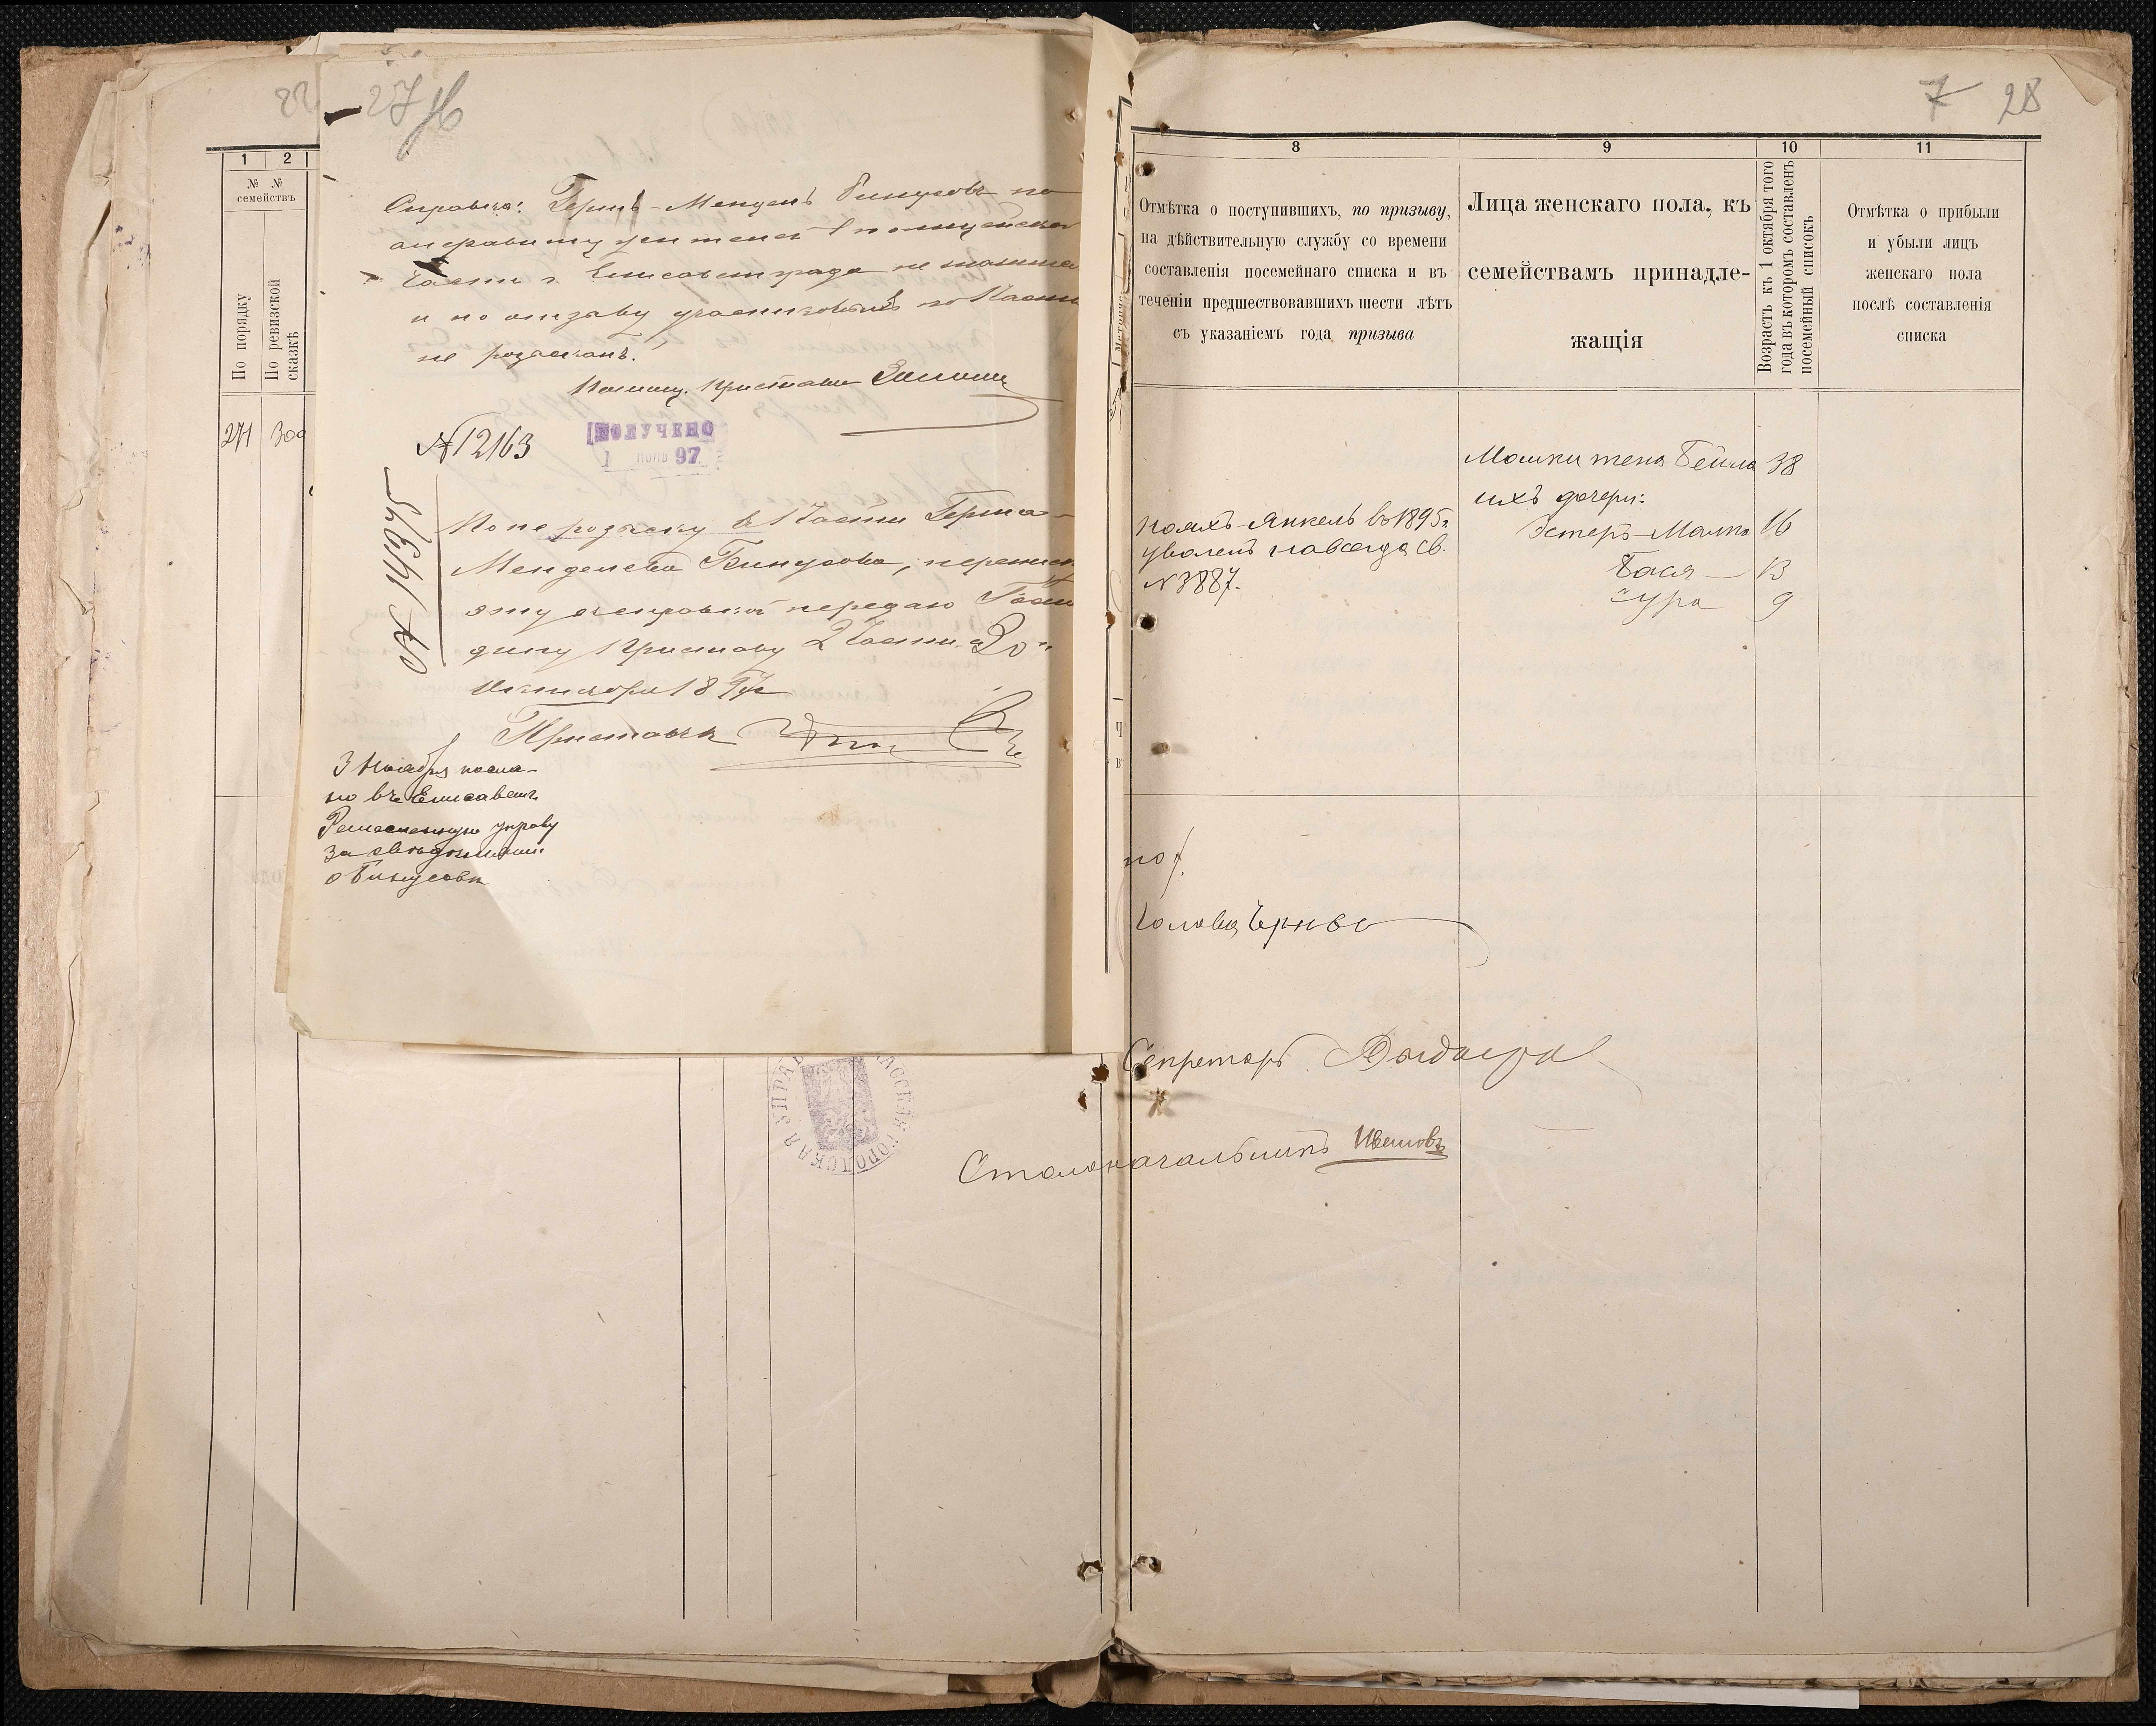 27 об
1 2
№ №
семействъ
По порядку
По ревизской
сказкѣ
271 300
Справка: Герш-Мендель Бинусовъ по
алфавиту жителей 1 полицейской
Части г. Елисаветграда не значится
и по отзыву участковыхъ по Части
не розысканъ.
Помощ. Пристава
№ 12163
ПОЛУЧЕНО
1 97
№ 14375
По не розыску в 1 Части Герша-
Менделева Бинусова, переписку
эту съ справкой передаю Госпо
дину Приставу 2 Части. "30"
Октября 18 97 г.
Приставъ
3 Ноября посла-
но въ Елисавет.
Ремесленную управу
за свѣдѣніями
о Бинусовѣ
ГОРОДСКАЯ УПРАВА
7 28
8 9 10 11
Отмѣтка о поступившихъ, по призыву,
на дѣйствительную службу со времени
составленія посемейнаго списка и въ
теченіи предшествовавшихъ шести лѣтъ
съ указаніемъ года призыва
Лица женскаго пола, къ
семействамъ принадле-
жащія
Возрастъ къ 1 октября того
года въ которомъ составленъ
посемейный списокъ
Отмѣтка о прибыли
и убыли лицъ
женскаго пола
послѣ составленія
списка
Мошки жена Бейла 38
ихъ дочери:
Эстеръ-Малка 16
Бася 13
Сура 9
-Янкель въ 1895 г.
уволенъ навсегда св.
№ 3887.
Голова
Секретарь
Столоначальникъ Ивановъ